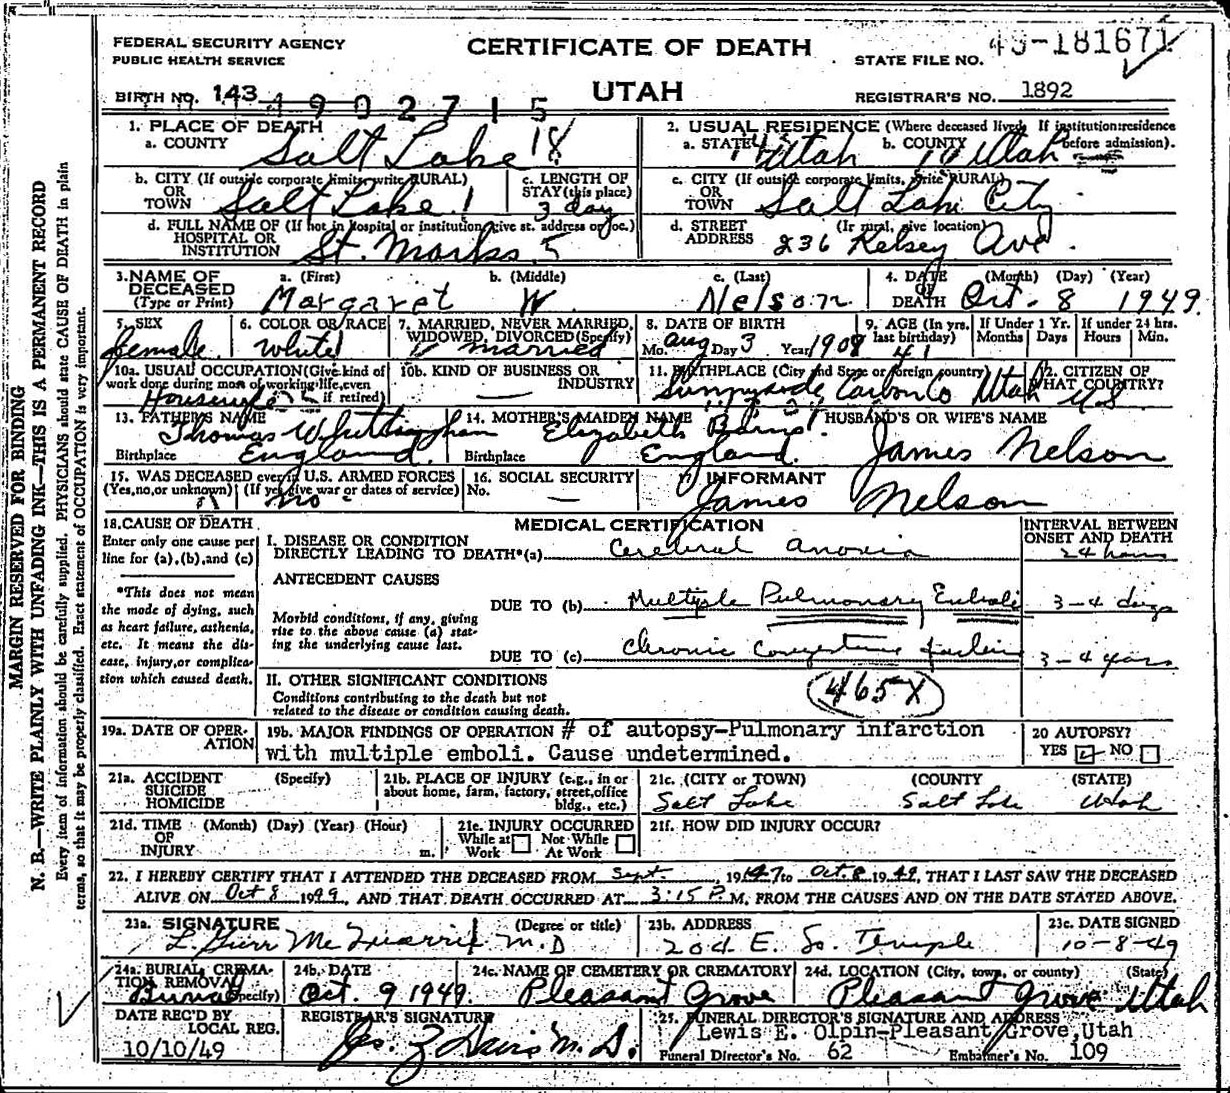 FEDERAL SECURITY AGENCY
PUBLIC HEALTH SERVICE
CERTIFICATE OF DEATH
UTAH
STATE FILE NO. 49-181671
BIRTH NO. 143
4902715
REGISTRAR'S NO. 1892
1. PLACE OF DEATH
a. COUNTY Salt Lake 18
2. USUAL RESIDENCE (Where deceased lived. If institution: residence before admission).
a. STATE Utah b. COUNTY Utah
b. CITY (If outside corporate limits, write RURAL) OR TOWN Salt Lake 1
c. LENGTH OF STAY (this place) 3 day
c. CITY (If outside corporate limits, write RURAL) OR TOWN Salt Lake City
d. FULL NAME OF (If not in hospital or institution, give st. address or loc.) HOSPITAL OR INSTITUTION St. Marks 5
d. STREET ADDRESS (If rural, give location) 236 Kelsey Ave.
3. NAME OF DECEASED (Type or Print)
a. (First) Margaret b. (Middle) W. c. (Last) Nelson
4. DATE OF DEATH (Month) (Day) (Year) Oct. 8 1949.
5. SEX Female
6. COLOR OR RACE White
7. MARRIED, NEVER MARRIED, WIDOWED, DIVORCED (Specify) married
8. DATE OF BIRTH Mo. Aug Day 3 Year 1908
9. AGE (In yrs. last birthday) 41
If Under 1 Yr. Months Days
If under 24 hrs. Hours Min.
10a. USUAL OCCUPATION (Give kind of work done during most of working life, even if retired) Housewife
10b. KIND OF BUSINESS OR INDUSTRY —
11. BIRTHPLACE (City and State or foreign country) Sunnyside, Carbon Co Utah
12. CITIZEN OF WHAT COUNTRY? US
13. FATHER'S NAME Thomas Whittingham
Birthplace England.
14. MOTHER'S MAIDEN NAME Elizabeth Barns.
Birthplace England.
HUSBAND'S OR WIFE'S NAME James Nelson
15. WAS DECEASED ever in U.S. ARMED FORCES
(Yes, no, or unknown) (If yes give war or dates of service) No
16. SOCIAL SECURITY No. —
17. INFORMANT James Nelson
18. CAUSE OF DEATH
Enter only one cause per line for (a), (b), and (c)
*This does not mean the mode of dying, such as heart failure, asthenia, etc. It means the disease, injury, or complication which caused death.
MEDICAL CERTIFICATION
INTERVAL BETWEEN ONSET AND DEATH
I. DISEASE OR CONDITION DIRECTLY LEADING TO DEATH* (a) Cerebral anoxia 24 hours
ANTECEDENT CAUSES
Morbid conditions, if any, giving rise to the above cause (a) stating the underlying cause last.
DUE TO (b) Multiple Pulmonary Emboli 3-4 days
DUE TO (c) Chronic Congestive failure 3-4 years
II. OTHER SIGNIFICANT CONDITIONS
Conditions contributing to the death but not related to the disease or condition causing death.
465X
19a. DATE OF OPERATION
19b. MAJOR FINDINGS OF OPERATION # of autopsy-Pulmonary infarction
with multiple emboli. Cause undetermined.
20 AUTOPSY?
YES NO
21a. ACCIDENT SUICIDE HOMICIDE (Specify)
21b. PLACE OF INJURY (e.g., in or about home, farm, factory, street, office bldg., etc.)
21c. (CITY or TOWN) (COUNTY (STATE)
Salt Lake Salt Lake Utah
21d. TIME OF INJURY (Month) (Day) (Year) (Hour) m.
21e. INJURY OCCURRED
While at Work Not While At Work
21f. HOW DID INJURY OCCUR?
22. I HEREBY CERTIFY THAT I ATTENDED THE DECEASED FROM Sept 1947 to Oct. 8 1949, THAT I LAST SAW THE DECEASED
ALIVE ON Oct 8 1949, AND THAT DEATH OCCURRED AT 3:15 P. M, FROM THE CAUSES AND ON THE DATE STATED ABOVE.
23a. SIGNATURE (Degree or title) M.D
23b. ADDRESS 204 E. So. Temple
23c. DATE SIGNED 10-8-49
24a. BURIAL, CREMATION, REMOVAL (Specify) Burial
24b. DATE Oct. 9 1949.
24c. NAME OF CEMETERY OR CREMATORY Pleasant Grove
24d. LOCATION (City, town, or county) (State) Pleasant Grove Utah
DATE REC'D BY LOCAL REG. 10/10/49
REGISTRAR'S SIGNATURE M.D.
25. FUNERAL DIRECTOR'S SIGNATURE AND ADDRESS
Lewis E. Olpin-Pleasant Grove, Utah
Funeral Director's No. 62 Embalmer's No. 109
MARGIN RESERVED FOR BINDING
N. B.—WRITE PLAINLY WITH UNFADING INK—THIS IS A PERMANENT RECORD
Every item of information should be carefully supplied. PHYSICIANS should state CAUSE OF DEATH in plain
terms, so that it may be properly classified. Exact statement of OCCUPATION is very important.